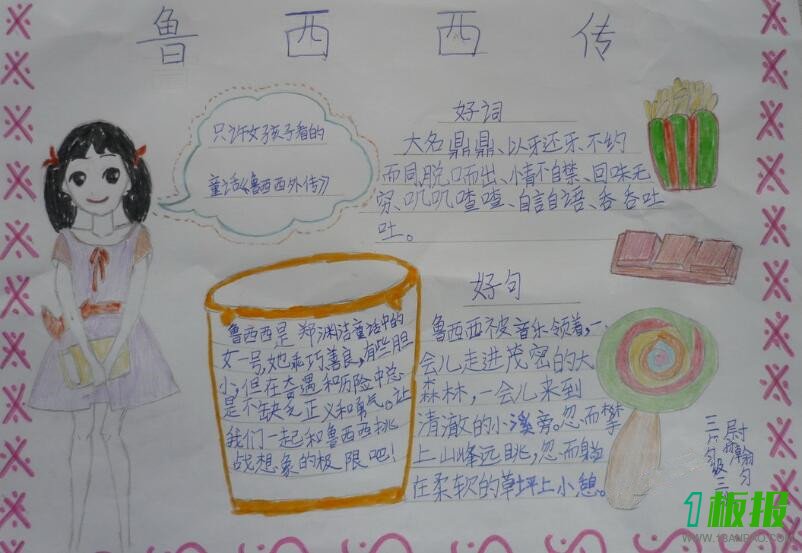 鲁西西传
只许女孩子看的
童话《鲁西西外传》
好词
大名鼎鼎、以牙还牙、不约
而同、脱口而出、小情不自禁、回味无
穷、叽叽喳喳、自言自语、吞吞吐
吐。
好句
鲁西西是郑渊洁童话中的
女一号,她乖巧善良,有些胆
小,但在奇遇和历险中总
是不缺乏正义和勇气。让
我们一起和鲁西西挑
战想象的极限吧!
鲁西西被音乐领着,一
会儿走进茂密的大
森林,一会儿来到
清澈的小溪旁。忽而攀
上山峰远眺,忽而躺
在柔软的草坪上小憩。
1板报
WWW.1BANBAO.COM